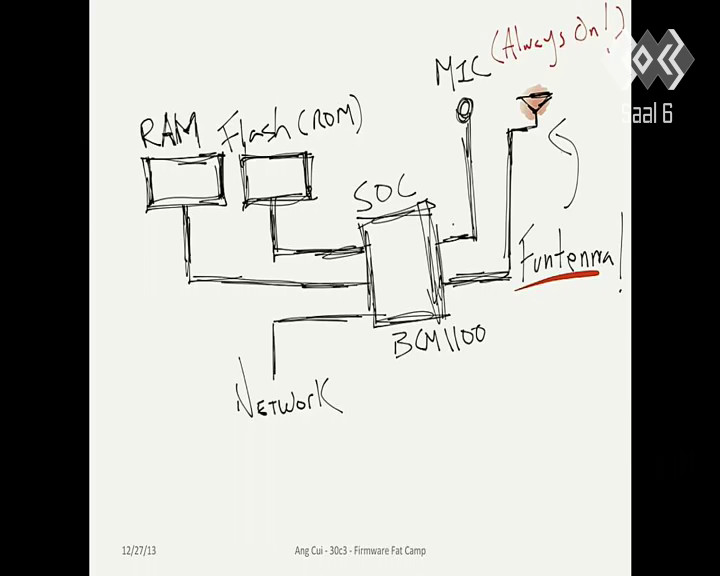 (Always On!)
MIC
Saal 6
RAM
Flash (ROM)
SOC
Funtenna!
BCM1100
NETWORK
12/27/13
Ang Cui - 30c3 - Firmware Fat Camp